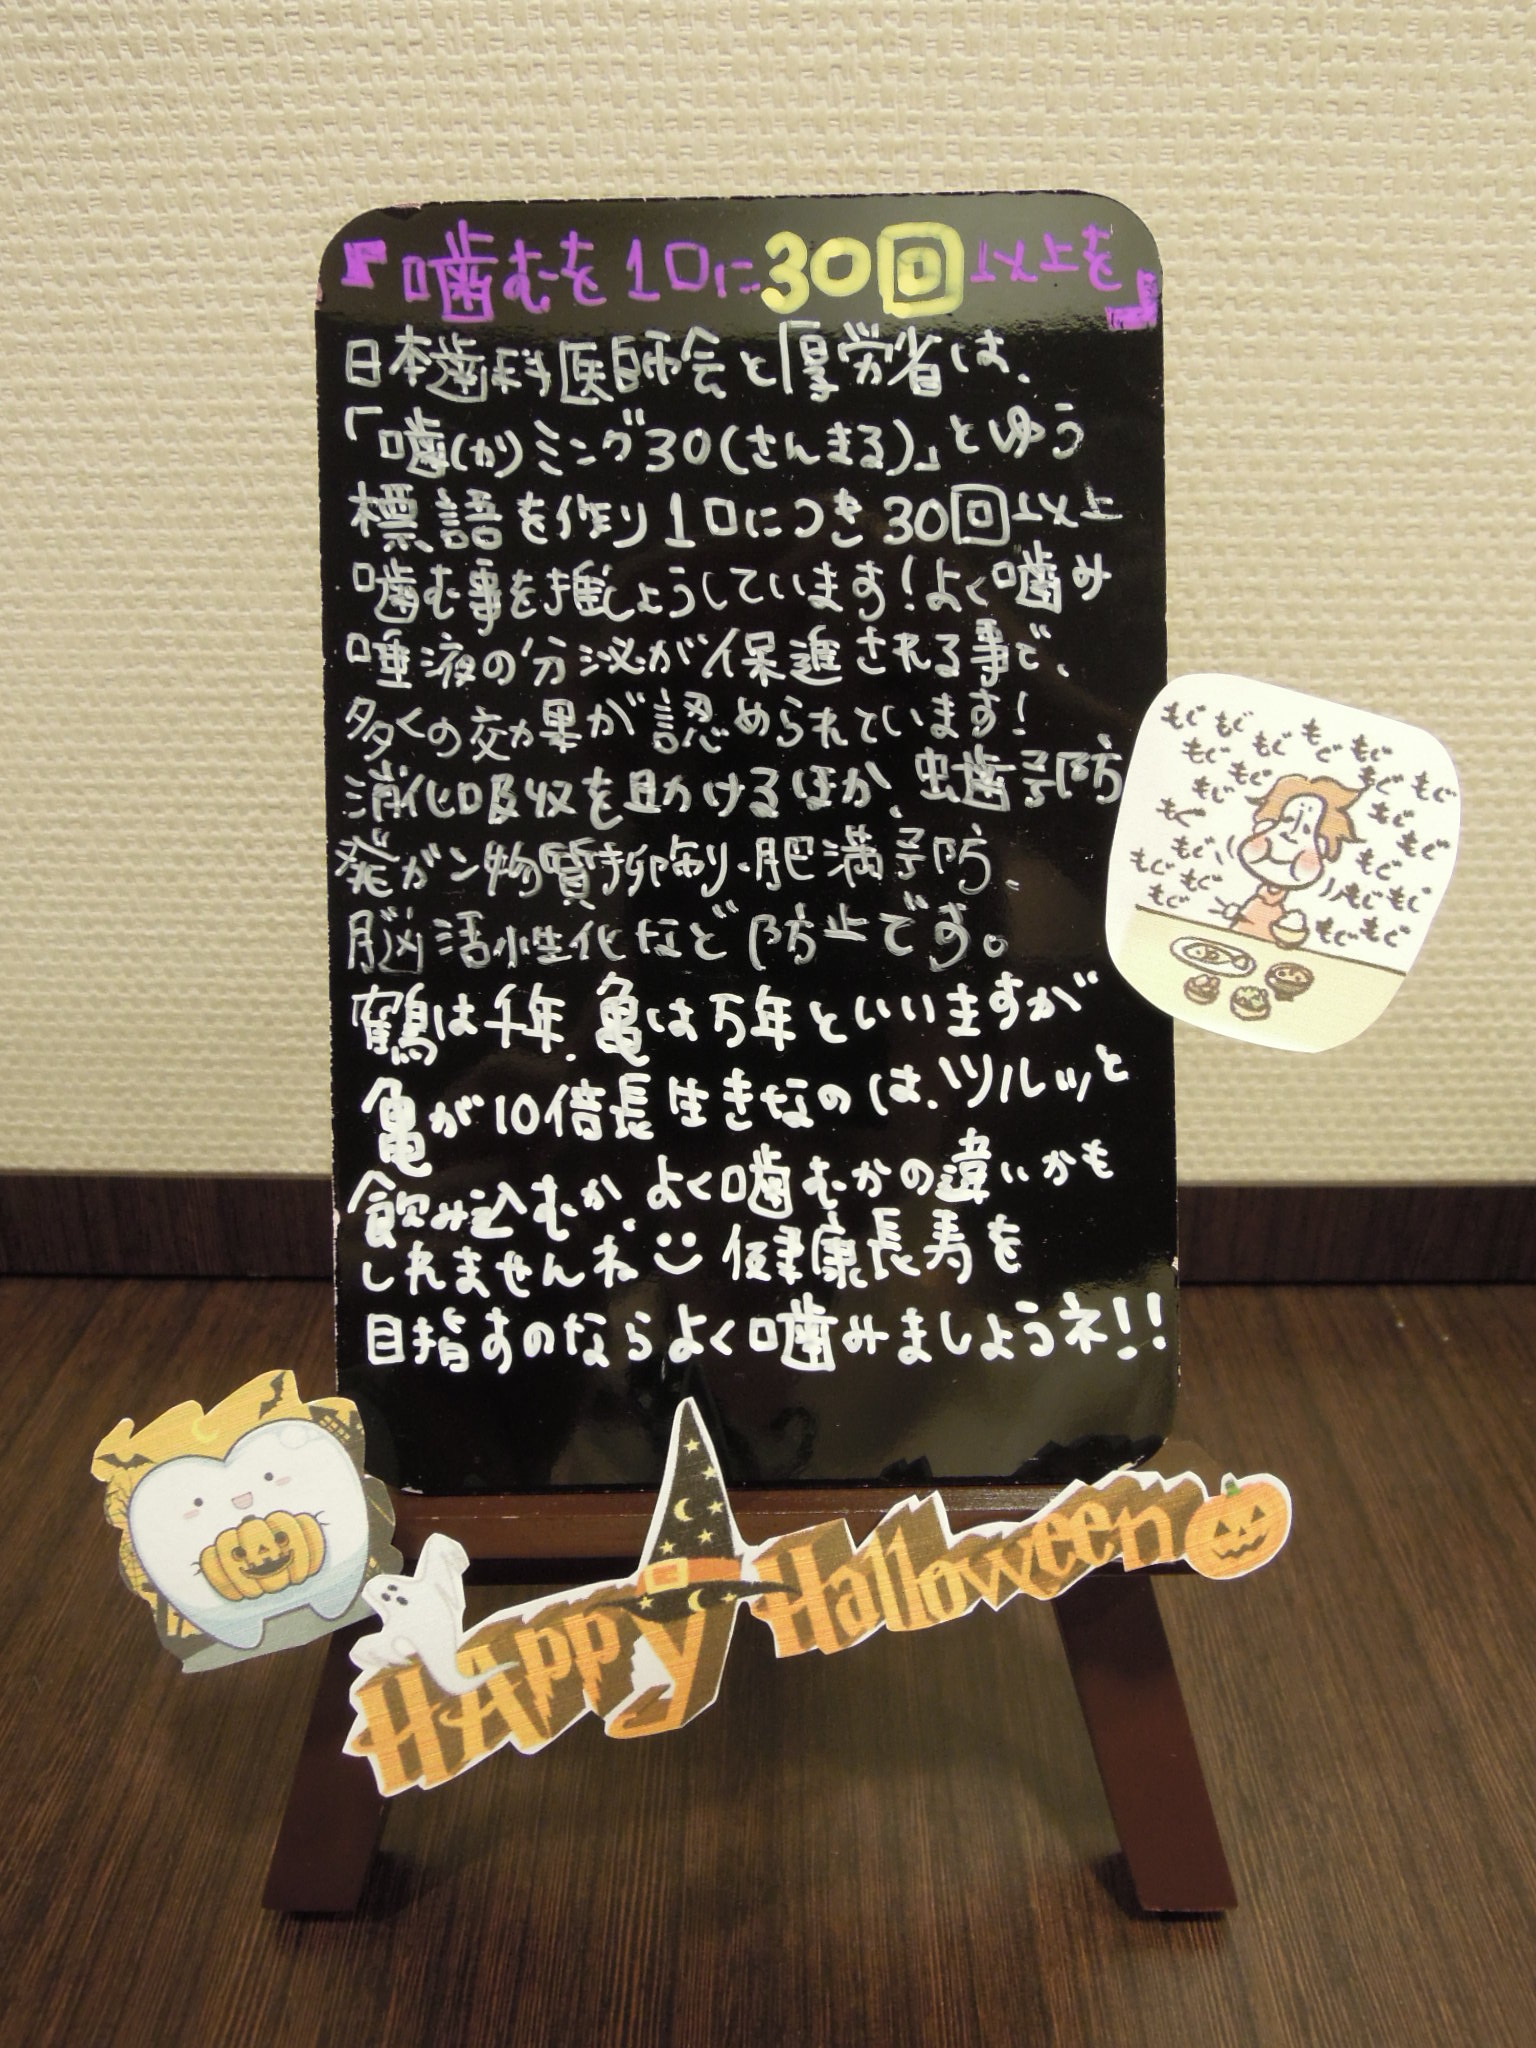 『噛むを1口に30回以上を』
日本歯科医師会と厚労省は、
「噛(か)ミング30(さんまる)」とゆう
標語を作り1口につき30回以上
噛む事を推しょうしています!よく噛み
唾液の分泌が保進される事で、
多くの効果が認められています!
消化吸収を助けるほか、虫歯予防
発ガン物質抑制、肥満予防、
脳活性化など防止です。
鶴は千年、亀は万年といいますが
亀が10倍長生きなのは、ツルッと
飲み込むか、よく噛むかの違いかも
しれませんね 健康長寿を
目指すのならよく噛みましょうネ!!
もぐ もぐ もぐ もぐ
もぐ もぐ もぐ もぐ
もぐ もぐ もぐ
もぐ もぐ
もぐ もぐ
もぐ もぐ もぐ もぐ
もぐ もぐ もぐ
HAppy Halloween